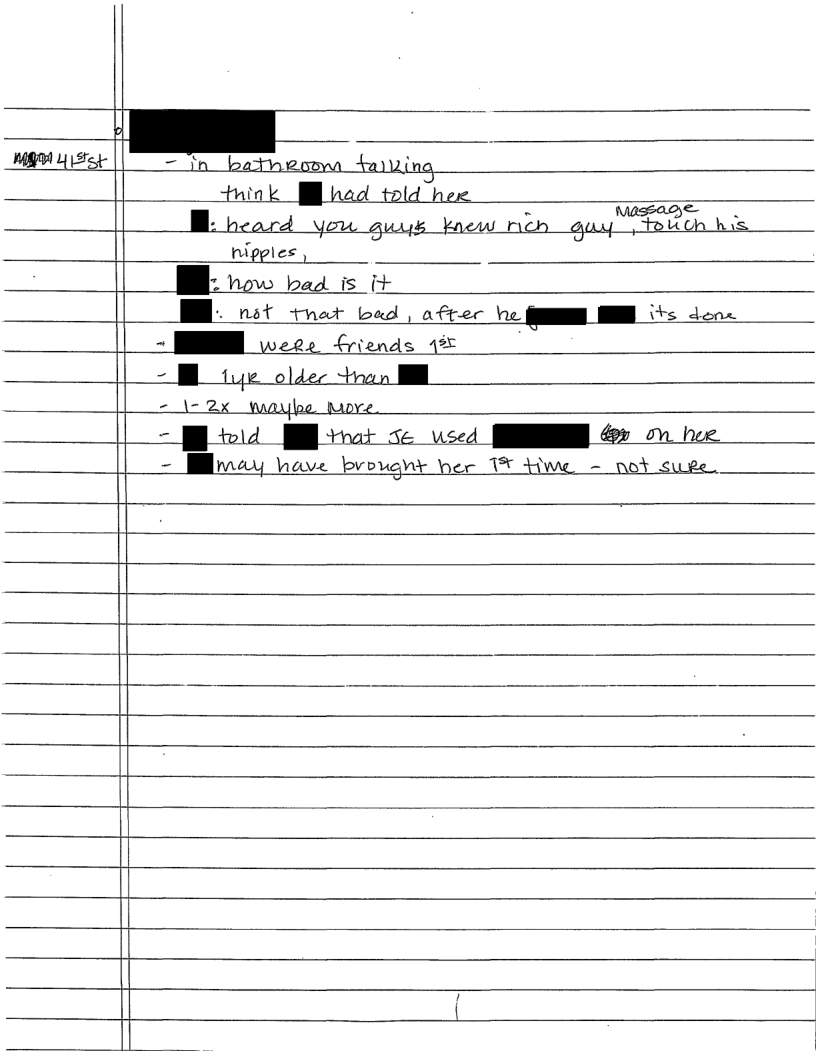 41st St
- in bathroom talking
think had told her
: heard you guys knew rich guy, massage touch his
nipples,
: how bad is it
: not that bad, after he its done
- were friends 1st
- 1yr older than
- 1-2x maybe more
- told that JE used on her
- may have brought her 1st time - not sure